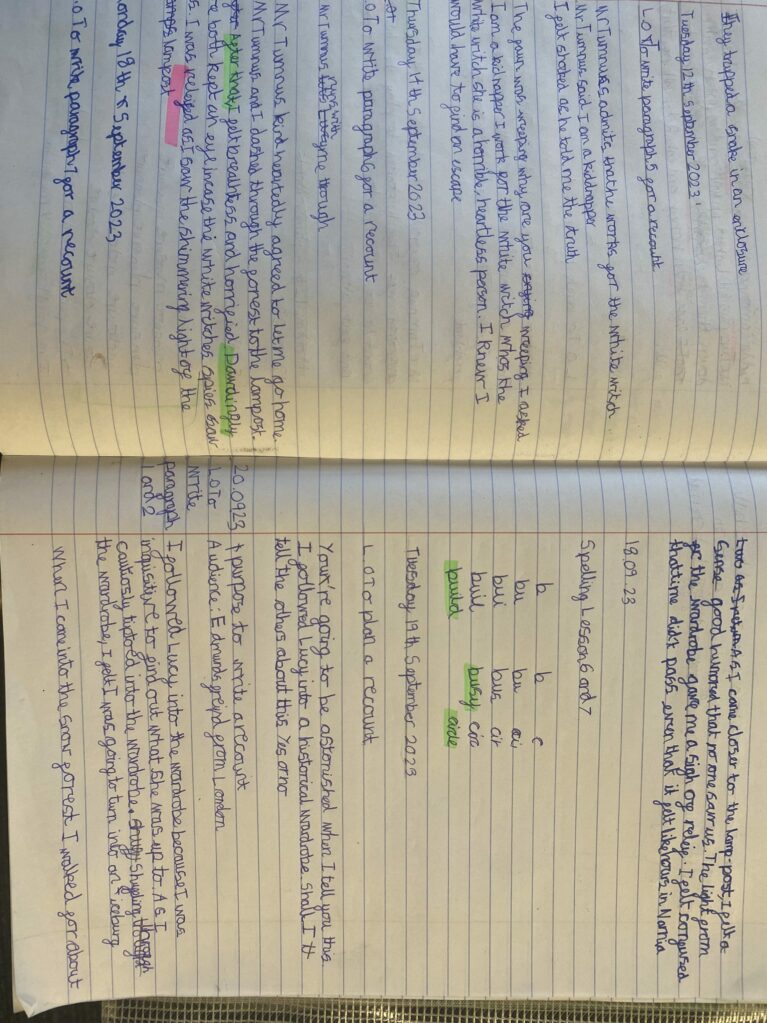 they trapped a snake in an enclosure
Tuesday 12th september 2023
L.O To write paragraph 5 gor a recount
Mr Tumnus admits that he works gor the White witch.
Mr Tumnus said I am a kiddnapper
I gelt shoked as he told me the truth
The paun was weeping why are you weeping I asked
I am a kidnapper I work gor the white witch whos the
white witch she is a horrible, heartless person. I knew I
would have to gind an escape
Thursday 14th September 2023
L.O To write paragraph 6 gor a recount
Mr Tumnus runs with me though
Mr Tumnus kind heartedly agreed to let me go home
Mr Tumnus and I dashed through the gorest to the lampost.
After that I gelt breathless and horrigied. Dawdlingly
we both kept an eye incase the white witches spies saw
us. I was releged as I saw the shimmering light og the
lamps lampost
Monday 18th September 2023
L.O To write paragraph 7 gor a recount
As I came closer to the lamp-post, I gelt a
sense good humored that no one saw us. The light grom
the wardrobe gave me a sigh og relieg. I gelt congused
that time didn't pass even that it gelt like hours in Narnia
18.09.23
Spelling Lesson 6 and 7
b b c
bu bu ci
bui bus cir
buil busy circ
build circle
Tuesday 19th September 2023
L.O To plan a recount
You're going to be astonished when I tell you this
I gollowed Lucy into a historical wardrobe shall I
tell the others about this Yes or no
20.0923 purpose to write a recount
L.O To Audience: Edmunds greind grom London
write
paragraph I gollowed Lucy into the wardrobe because I was
1 and 2 inquisitive to gind out what she was up to. As I
cautiosly tiptoed into the wardrobe, Shuggling through
the wardrobe, I gelt I was going to turn into an iceburg
When I came into the snow gorest I walked gor about